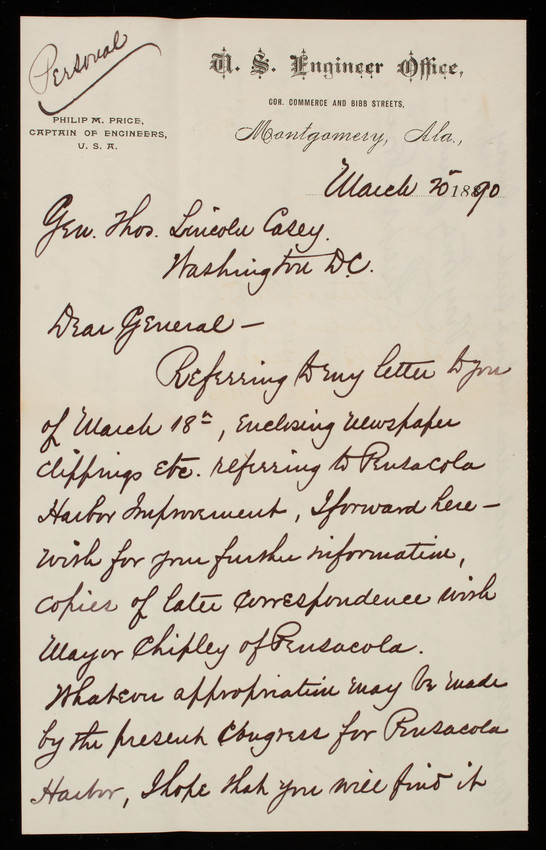 Personal
U. S. Engineer Office,
COR. COMMERCE AND BIBB STREETS,
PHILIP M. PRICE,
CAPTAIN OF ENGINEERS,
U. S. A.
Montgomery, Ala.,
March 25 1890
Gen. Thos. Lincoln Casey.
Washington D.C.
Dear General —
Referring to my letter to you
of March 18th, enclosing newspaper
clippings etc. referring to Pensacola
Harbor Improvement, I forward here-
with for your further information,
copies of later correspondence with
Mayor Chipley of Pensacola.
Whatever appropriation may be made
by the present Congress for Pensacola
Harbor, I hope that you will find it